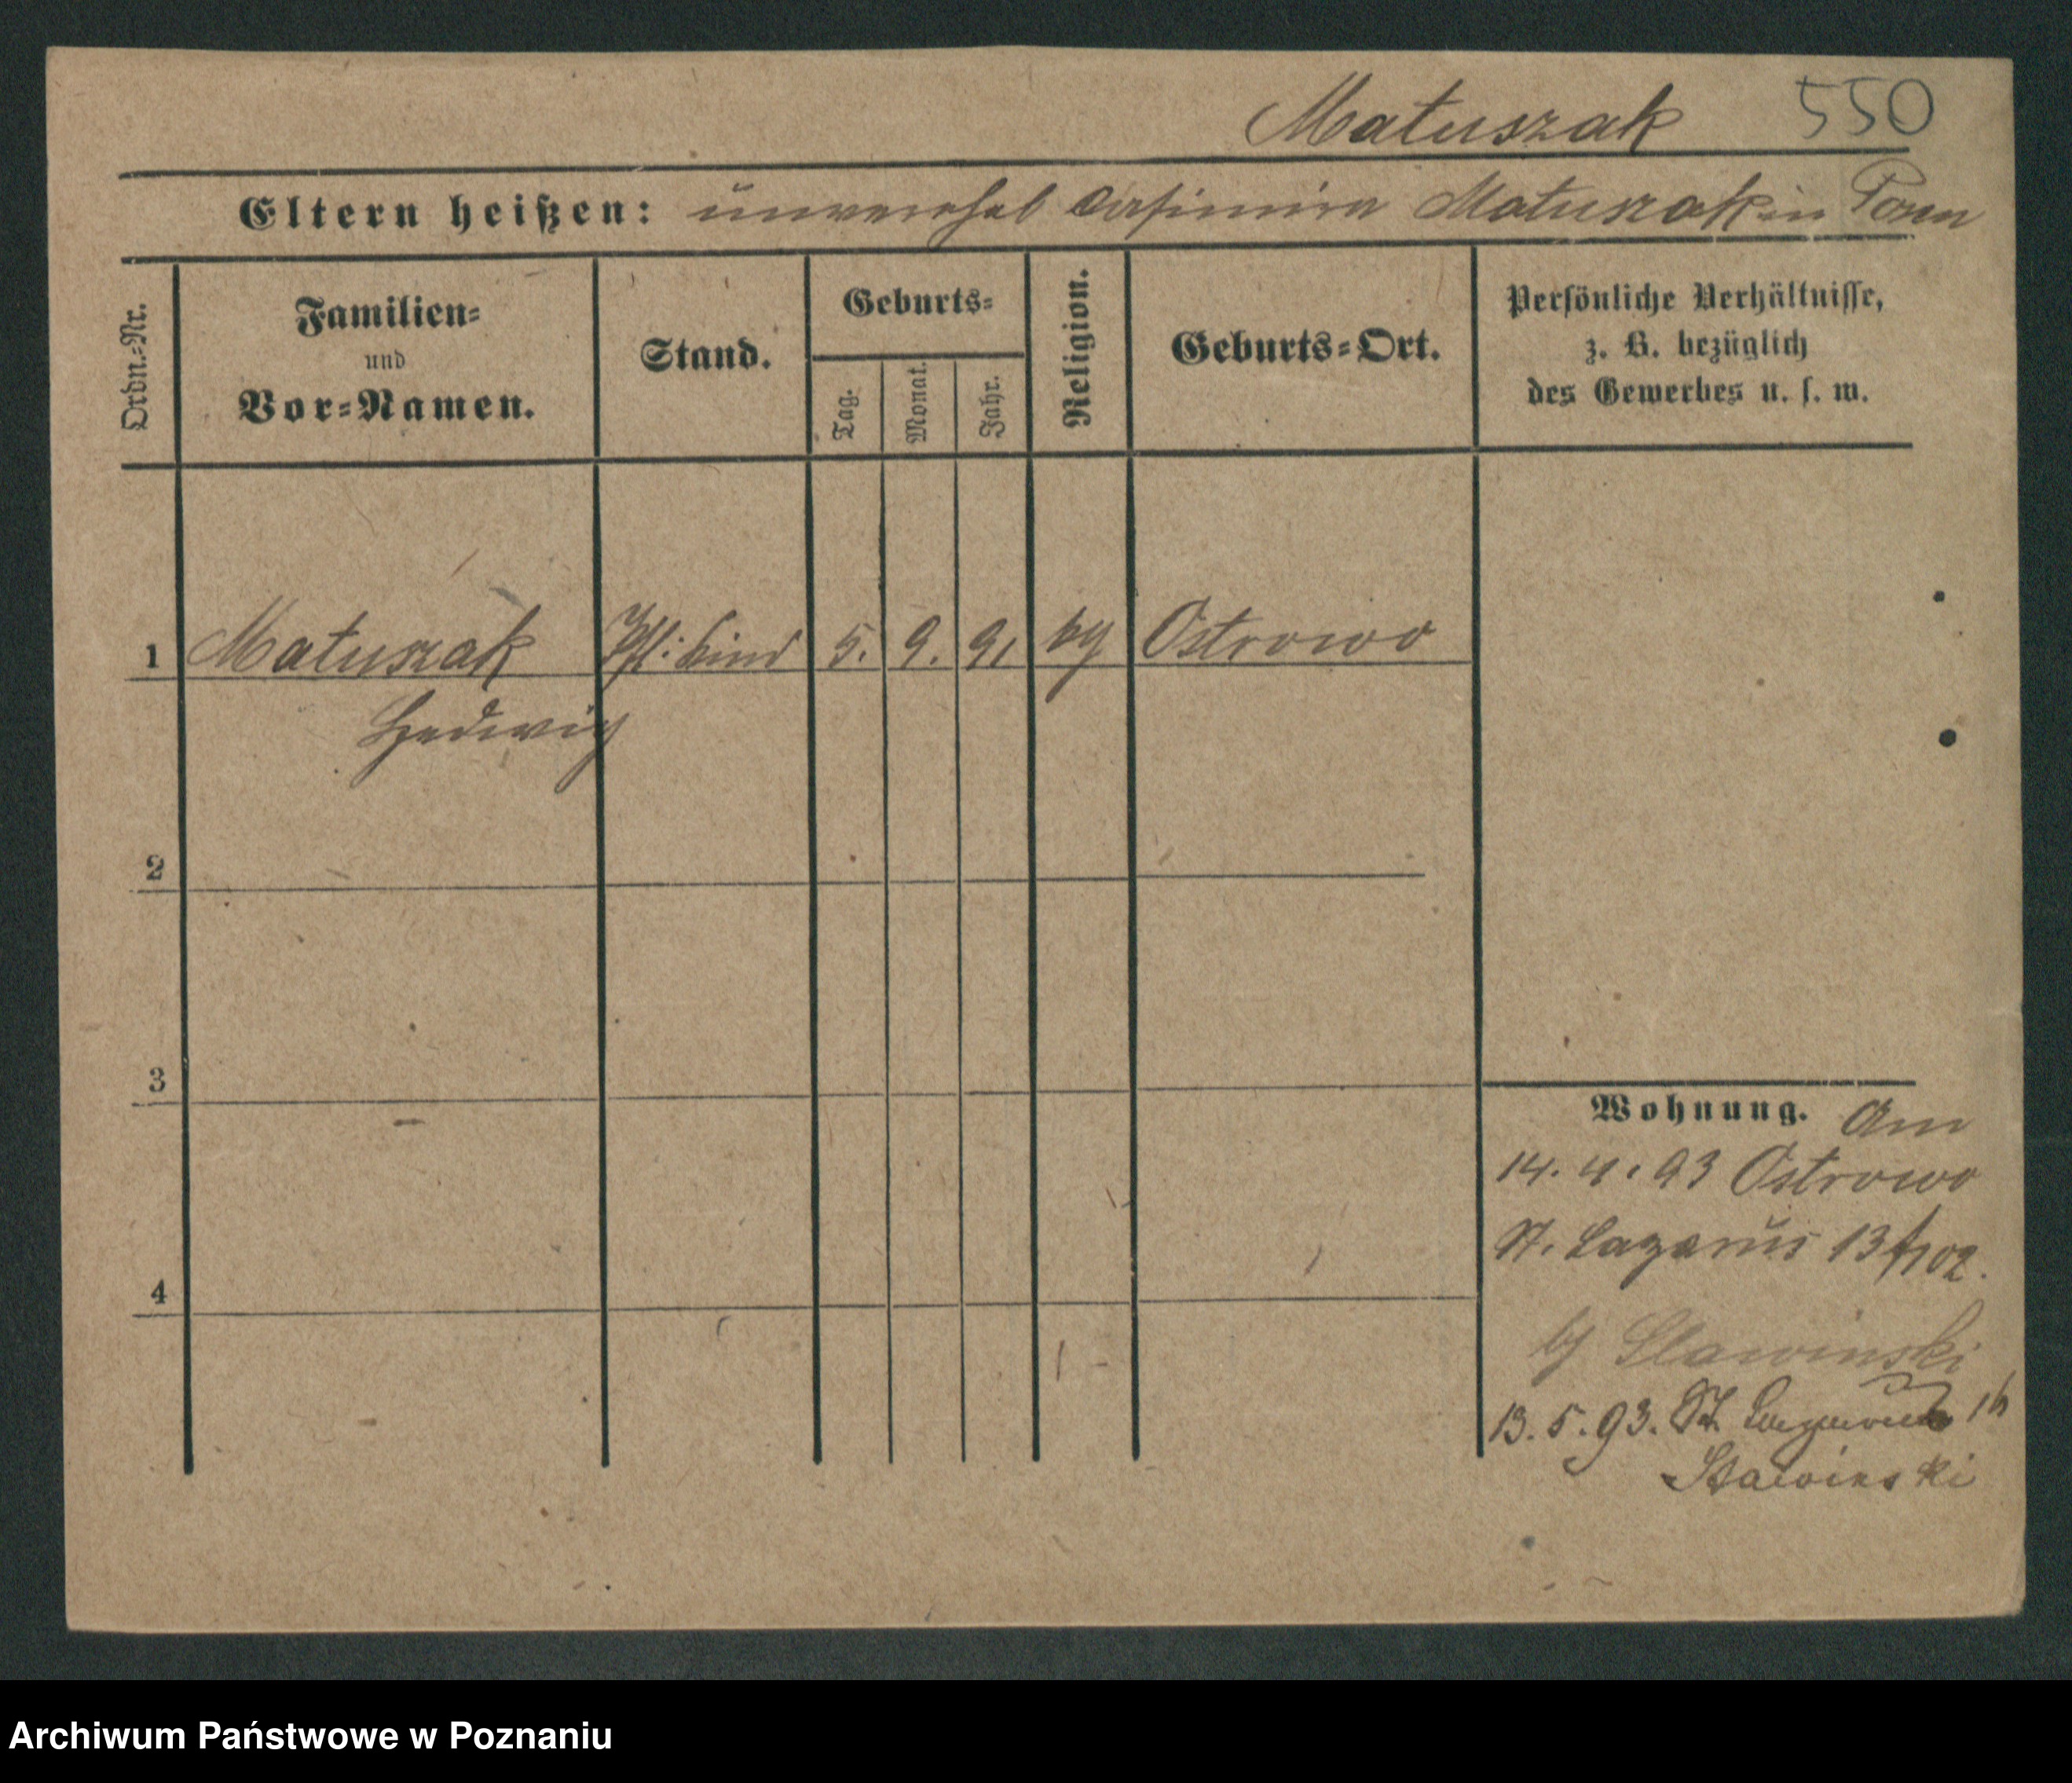 Matuszak 550
Eltern heißen: unverehel Casimira Matuszak in Posen
Ordn.-Nr.
Familien=
und
Vor=Namen.
Stand.
Geburts=
Tag.
Monat.
Jahr.
Religion.
Geburts=Ort.
Persönliche Verhältnisse,
z. B. bezüglich
des Gewerbes u. s. w.
1 Matuszak Pfl: kind 5. 9. 91 kg Ostrowo
Hedwig
2
3
4
Wohnung. Am
14. 4. 93 Ostrowo
St. Lazarus 13
Slawinski
13. 5. 93. St. Lazarus 16
Slawinski
Archiwum Państwowe w Poznaniu